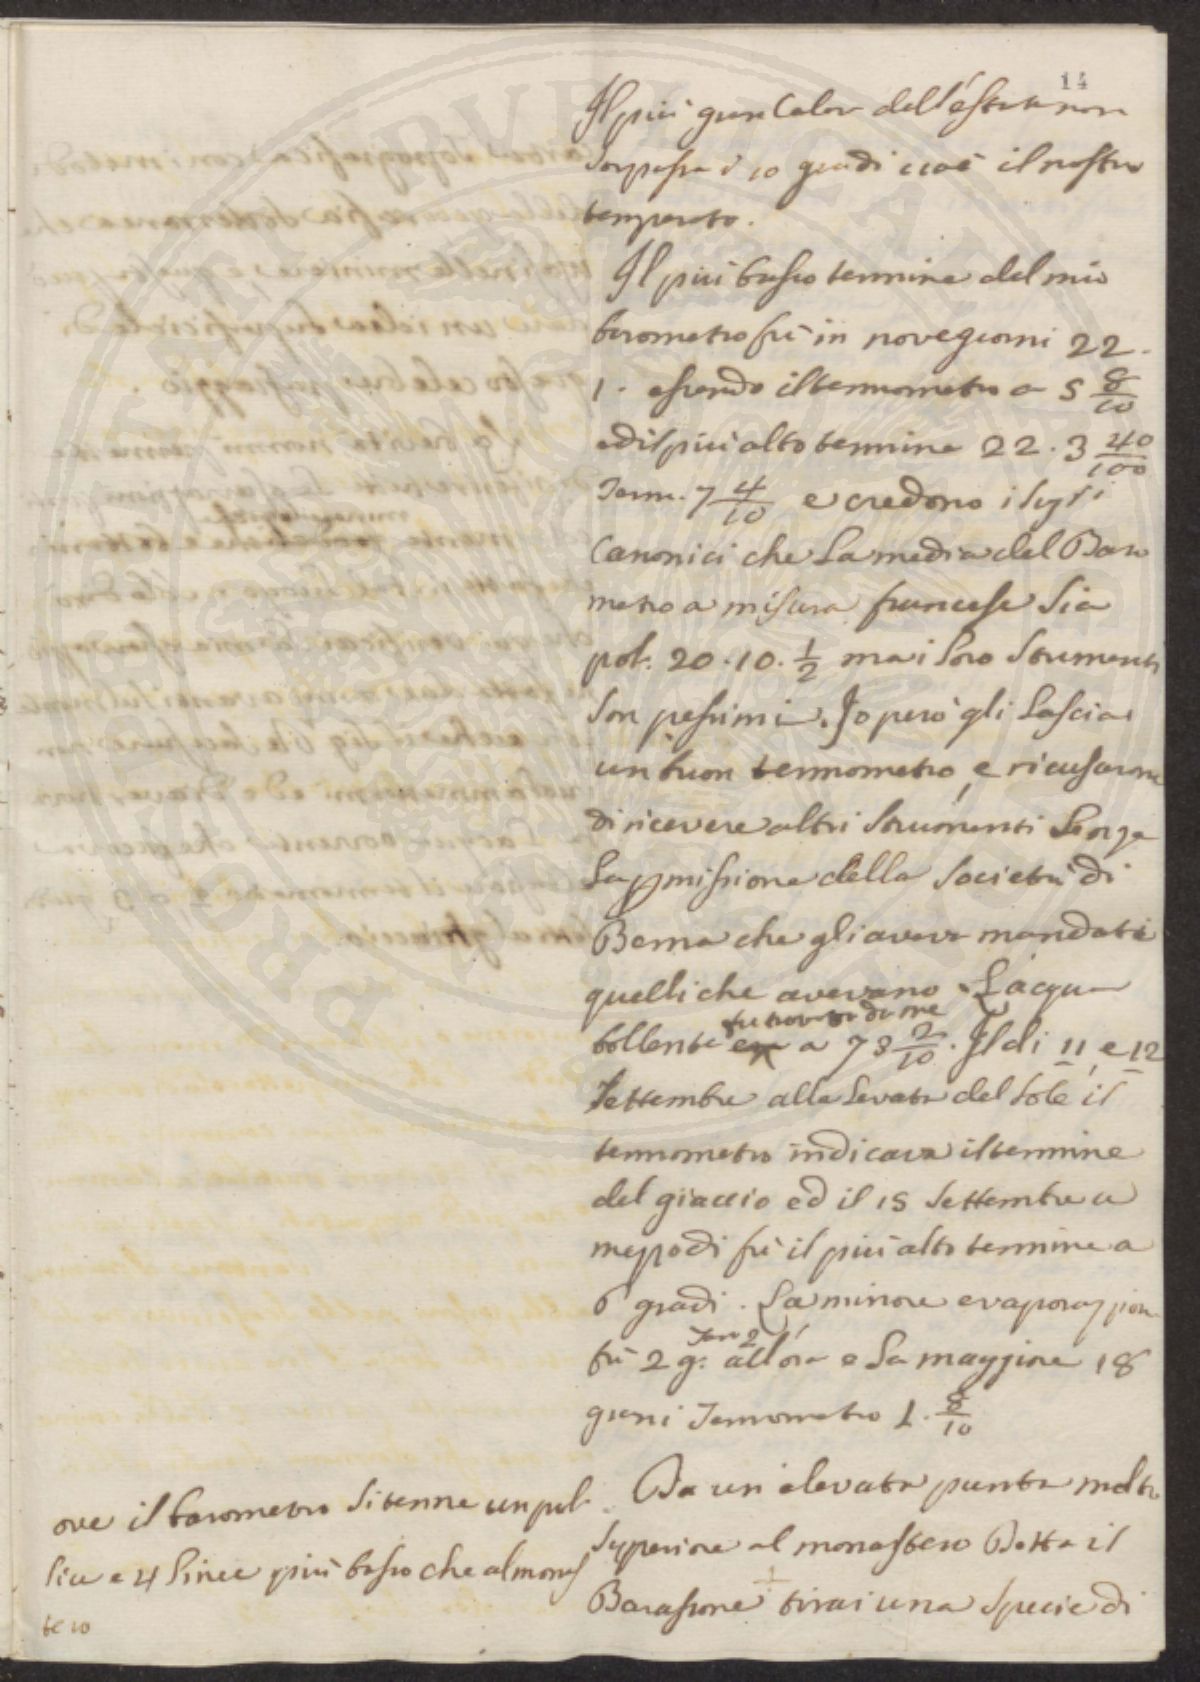 14
Il più gran Calor dell'éstate non
sorpassa i 10 gradi cioè il nostro
temperato.
Il più basso termine del mio
barometro fù in nove giorni 22.
1. essendo il termometro a 5 8/10
ed il più alto termine 22. 3 40/100
Term. 7 4/10 e credono i Sigri
Canonici che la media del Baro
metro a misura francese sia
pol. 20. 10. 1/2 ma i loro strumenti
son pessimi. Io però gli lasciai
un buon termometro, e ricusarono
di ricevere altri strumenti senza
la pmissione della Società di
Berna che gli aveva mandati
quelli che avevano. L'acqua
fu trovata da me
bollente era a 73 2/10. Il dì 11, e 12
Settembre alla levata del sole il
termometro indicava il termine
del giaccio ed il 15 Settembre a
mezzodì fù il più alto termine a
6 gradi. La minore evaporazzione
Term 2
fù 2 g: all'óra e la maggiore 18
grani Termometro 1. 8/10
Da un elevata punta molto
superiore al monastero Detta il
Barassone tirai una specie di
ove il barometro si tenne un pol
lice e 4 linee più basso che al monas
tero